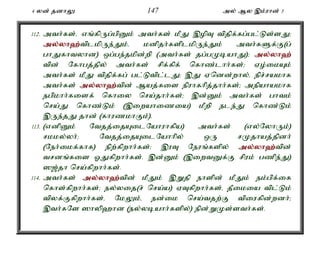 4 லன் தனாலு 147 அல் ஆல இம்ரான் 3
112. அவர்கள், எங்கிருப்பினும் அவர்கள் மீது இழிவு விதிக்கப்பட்டுள்ளது;
அல்லாஹ்விடமிருந்தும், மனிதர்களிடமிருந்தும் அவர்களுக்கு(ப்
பாதுகாவலான) ஒப்பந்தமின்றி (அவர்கள் தப்பமுடியாது); அல்லாஹ்
வின் கோபத்தில் அவர்கள் சிக்கிக் கொண்டார்கள்; ஏழ்மையும்
அவர்கள் மீது விதிக்கப் பட்டுவிட்டது; இது ஏனென்றால், நிச்சயமாக
அவர்கள் அல்லாஹ்வின் ஆயத்களை நிராகரித்தார்கள்; அநியாயமாக
நபிமார்களைக் கொலை செய்தார்கள்; இன்னும் அவர்கள் பாவம்
செய்து கொண்டும் (இறையாணையை) மீறி நடந்து கொண்டும்
இருந்தது தான் (காரணமாகும்).
113. (எனினும் வேதத்தையுடையோராகிய) அவர்கள் (எல்லோரும்)
சமமல்லர்; வேதத்தையுடையோரில் ஒரு சமுதாயத்தினர்
(நேர்மைக்காக) நிற்கிறார்கள்; இரவு நேரங்களில் அல்லாஹ்வின்
வசனங்களை ஓதுகிறார்கள். இன்னும் (இறைவனுக்கு சிரம் பணிந்து)
ஸஜ்தா செய்கிறார்கள்.
114. அவர்கள் அல்லாஹ்வின் மீதும் இறுதி நாளின் மீதும் நம்பிக்கை
கொள்கிறார்கள்; நல்லதை(ச் செய்ய) ஏவுகிறார்கள். தீமையை விட்டும்
விலக்குகிறார்கள். மேலும், நன்மை செய்வதற்கு விரைகின்றனர்;
இவர்களே ஸாலிஹான (நல்லடியார்களில்) நின்றுமுள்ளவர்கள்.